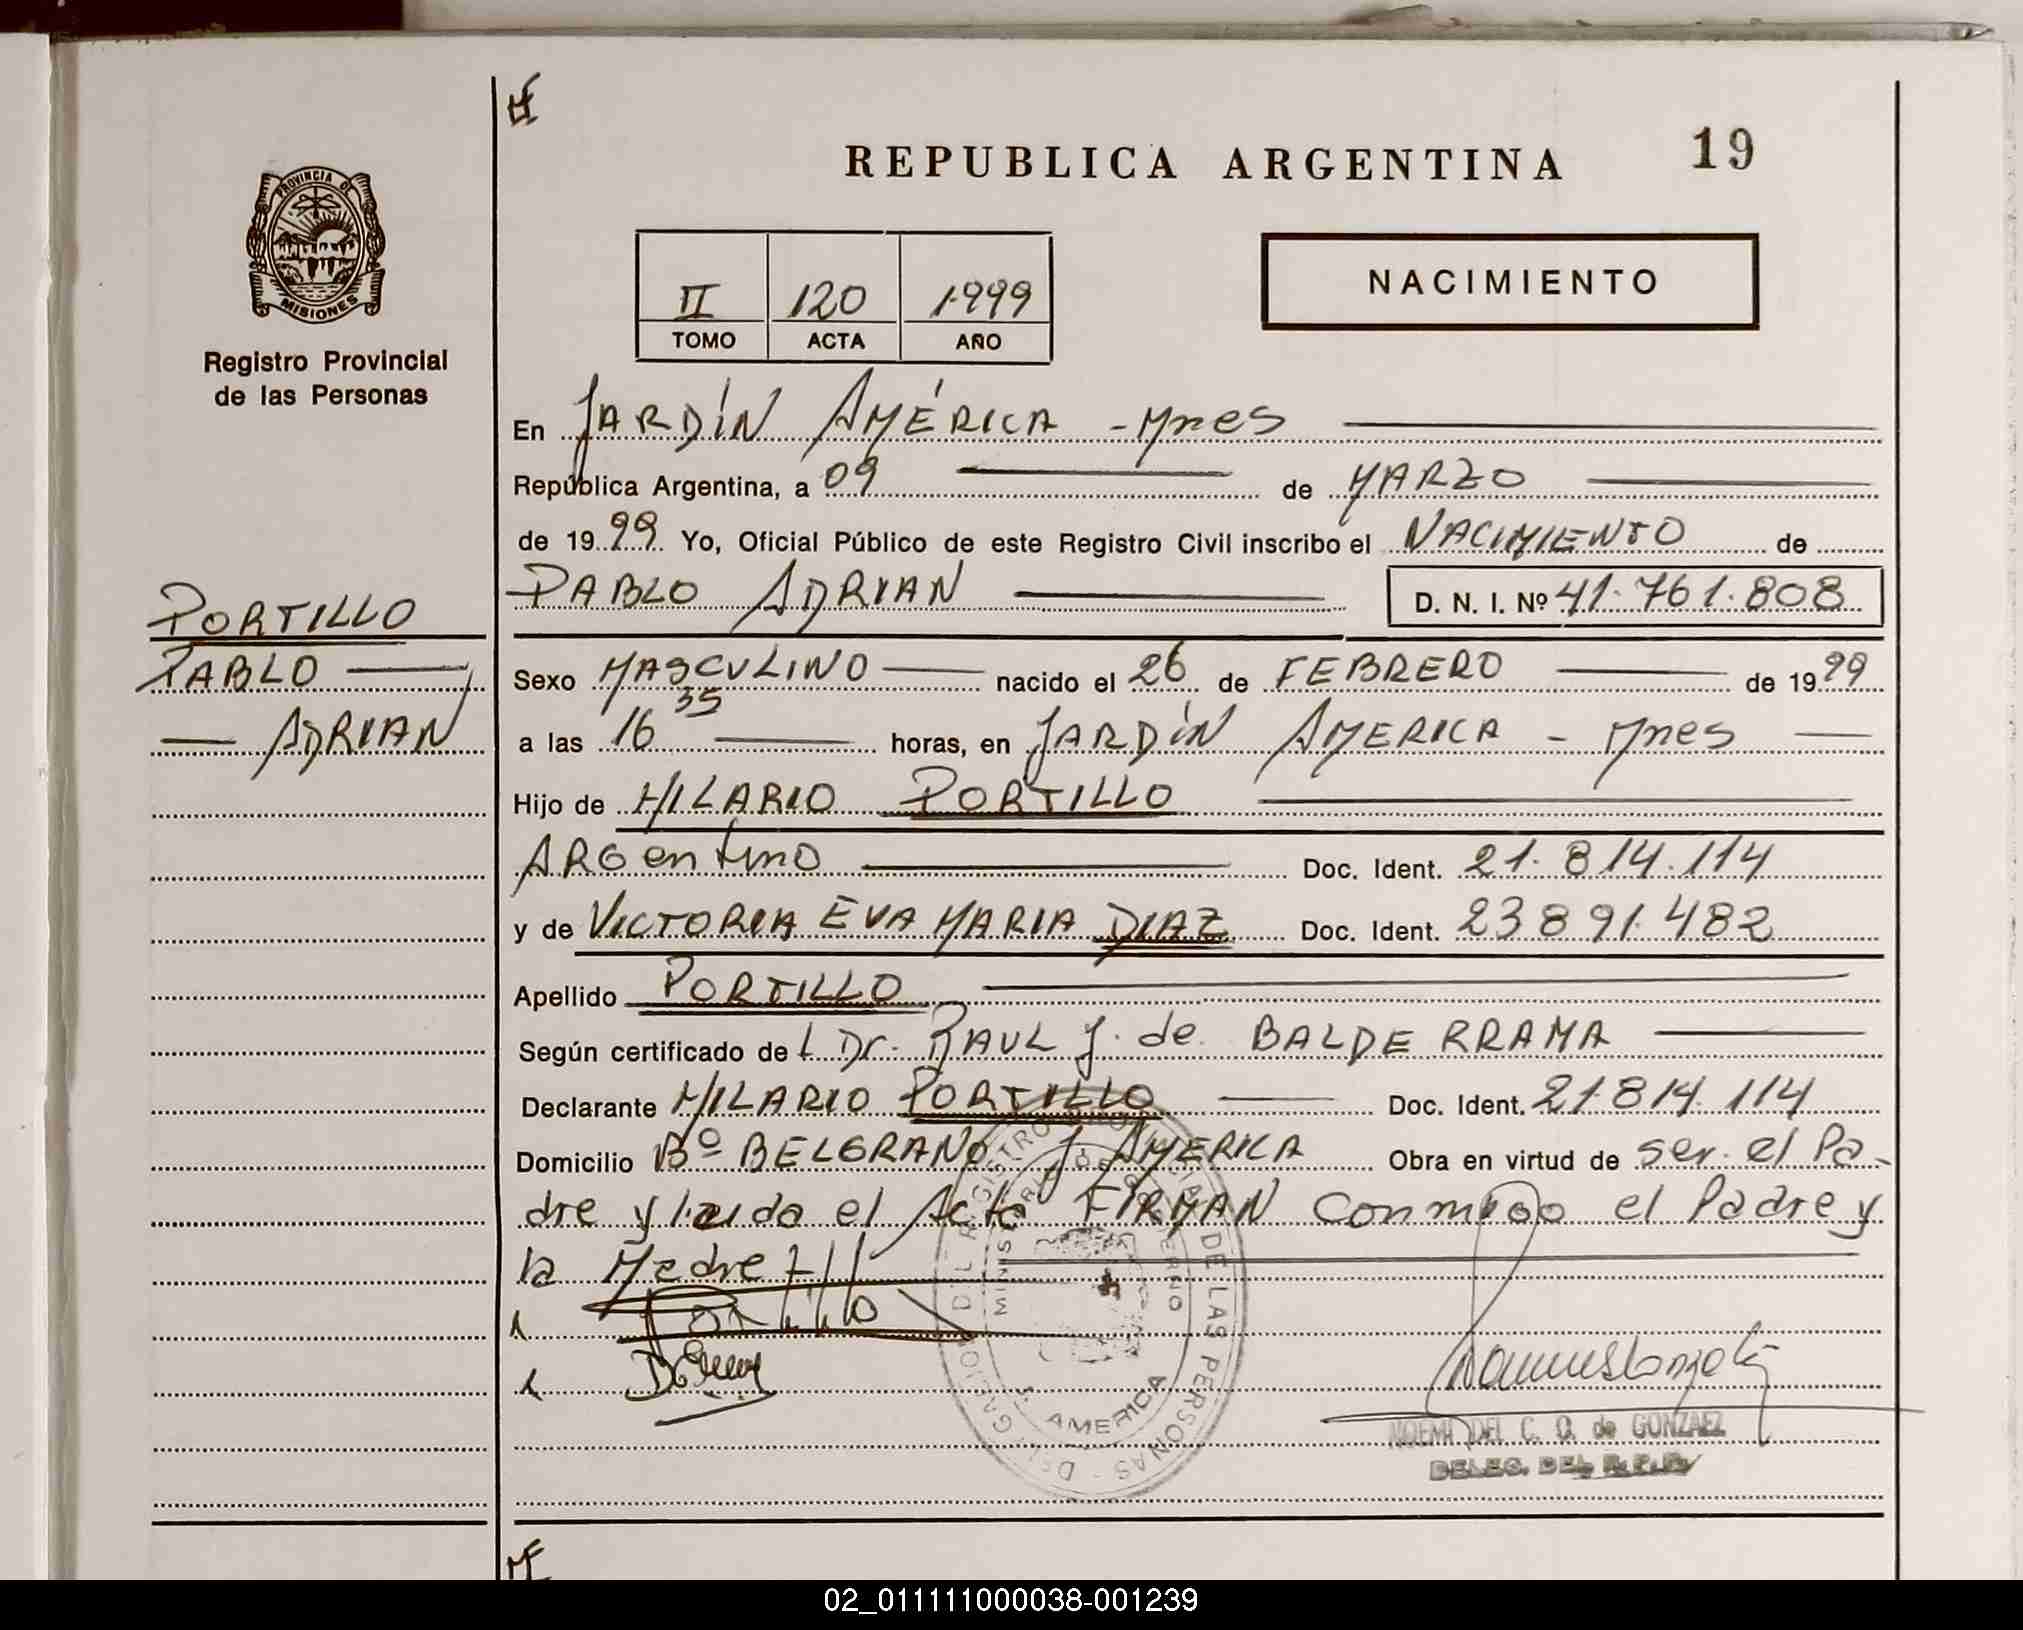 REPUBLICA ARGENTINA 19
PROVINCIA DE
MISIONES
Registro Provincial
de las Personas
NACIMIENTO
II 120 1999
TOMO ACTA AÑO
En JARDÍN AMÉRICA - Mnes
República Argentina, a 09 de MARZO
de 1999 Yo, Oficial Público de este Registro Civil inscribo el NACIMIENTO de
PABLO ADRIAN D. N. I. Nº 41.761.808
PORTILLO
PABLO
ADRIAN
Sexo MASCULINO nacido el 26 de FEBRERO de 1999
a las 16 35 horas, en JARDíN AMERICA - Mnes
Hijo de HILARIO PORTILLO
ARGentino Doc. Ident. 21.814.114
y de VICTORIA EVA MARIA DIAZ Doc. Ident. 23891.482
Apellido PORTILLO
Según certificado de l Dr. RAUL J. de BALDERRAMA
Declarante HILARIO PORTILLO Doc. Ident. 21.814.114
Domicilio Bº BELGRANO J. AMERICA Obra en virtud de ser el Pa-
dre y leída el Acta FIRMAN conmigo el Padre y
la Madre
Portillo
DELEGACION DEL REGISTRO PROVINCIAL DE LAS PERSONAS
MINISTERIO DE GOBIERNO
J. AMERICA
NOEMI DEL C. O. de GONZAEZ
DELEG. DEL R.P.P.
02_011111000038-001239